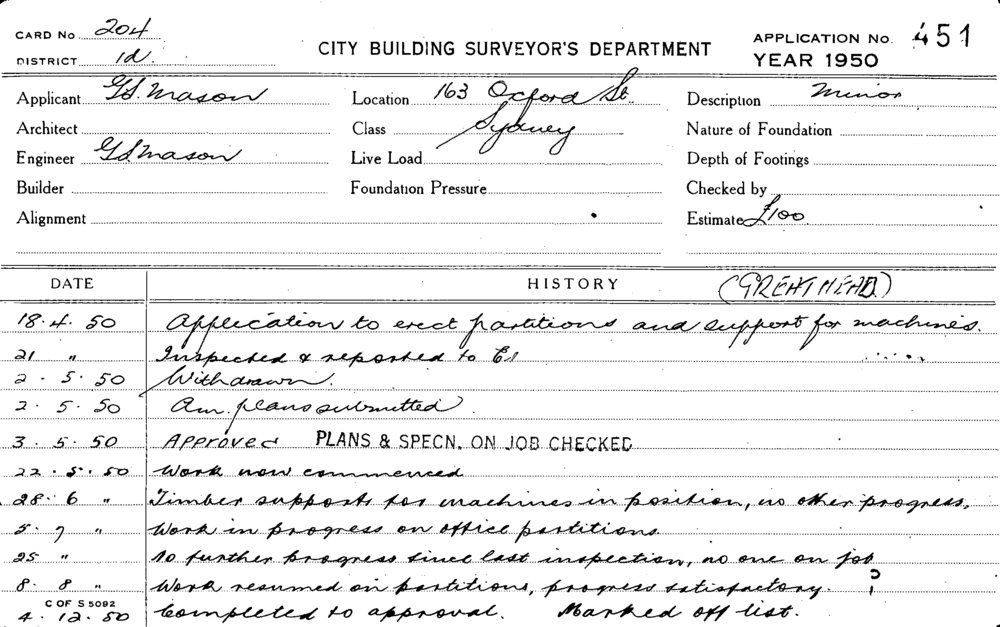 CARD No 204
DISTRICT 1d.
CITY BUILDING SURVEYOR'S DEPARTMENT
APPLICATION No. 451
YEAR 1950
Applicant G.S. Mason Location 163 Oxford St. Description Minor
Architect Class Sydney Nature of Foundation
Engineer G.S. Mason Live Load Depth of Footings
Builder Foundation Pressure Checked by
Alignment Estimate £100
DATE HISTORY (GREATHEAD.)
18.4.50 Application to erect partitions and support for machines.
21 " Inspected & reported to
2.5.50 Withdrawn.
2.5.50 Am. plans submitted.
3.5.50 Approved PLANS & SPECN. ON JOB CHECKED
22.5.50 Work now commenced
28.6 " Timber supports for machines in position, no other progress.
5.7 " Work in progress on office partitions.
25 " no further progress since last inspection, no one on job
8.8 " Work resumed on partitions, progress satisfactory. ?
C OF S 5092
4.12.50 Completed to approval. Marked off list.